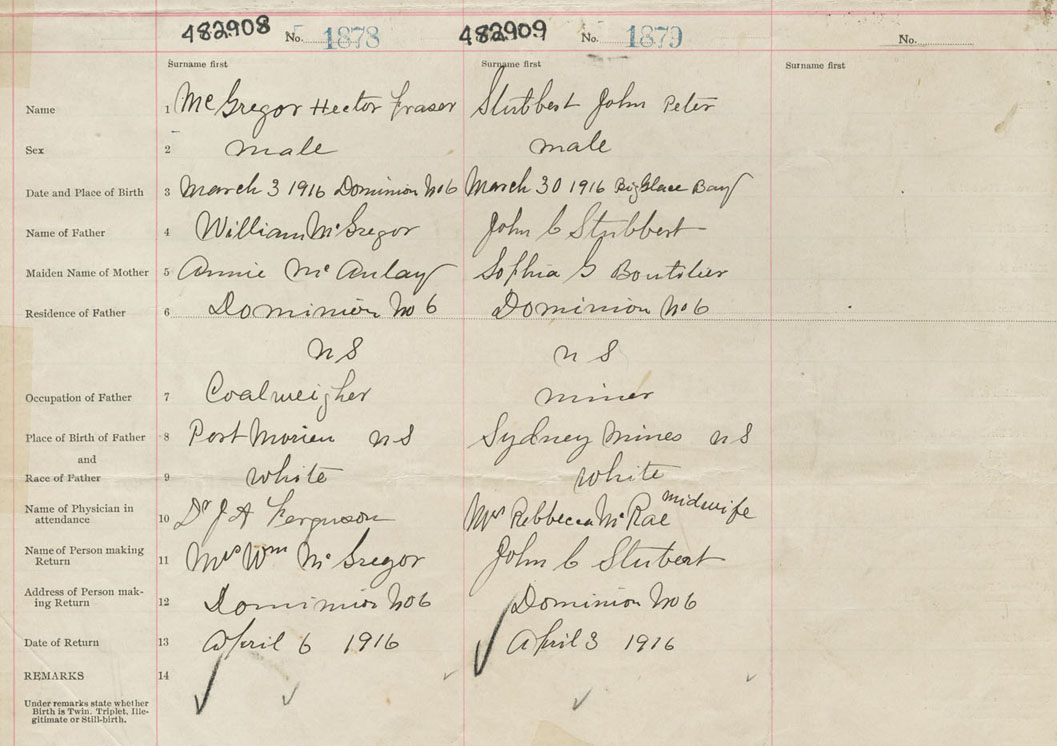 482908 No. 1878 482909 No. 1879 No.
Surname first Surname first Surname first
Name 1 McGregor Hector Fraser Stubbert John Peter
Sex 2 male male
Date and Place of Birth 3 March 3 1916 Dominion No 6 March 30 1916 Big Glace Bay
Name of Father 4 William McGregor John C Stubbert
Maiden Name of Mother 5 Annie McAulay Sophia G Boutilier
Residence of Father 6 Dominion No 6 Dominion No 6
N S N S
Occupation of Father 7 Coalweigher miner
Place of Birth of Father 8 Port Morien N S Sydney Mines N S
and
Race of Father 9 white white
Name of Physician in
attendance 10 Dr J A Ferguson Mrs Rebbecca McRae midwife
Name of Person making
Return 11 Mrs Wm McGregor John C Stubert
Address of Person mak-
ing Return 12 Dominion No 6 Dominion No 6
Date of Return 13 April 6 1916 April 3 1916
REMARKS 14
Under remarks state whether
Birth is Twin, Triplet, Ille-
gitimate or Still-birth.